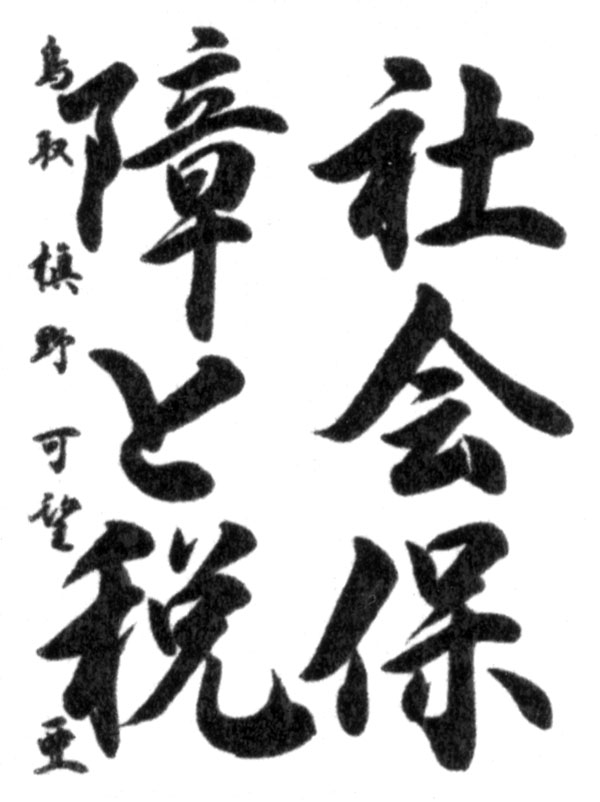 社会保
障と税
鳥取 槇野 可望 亜